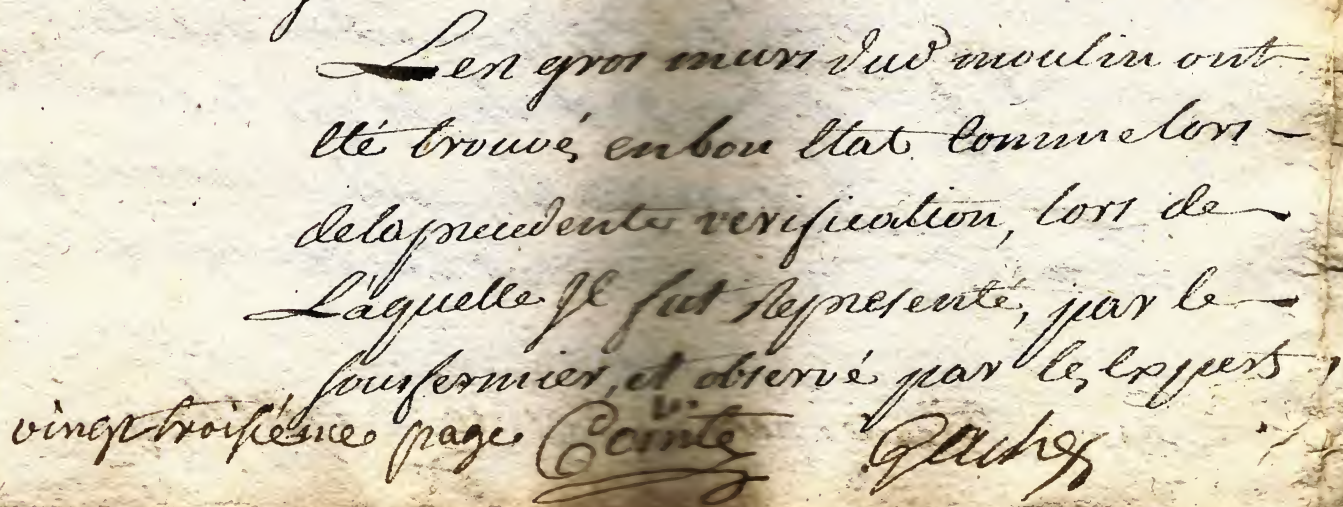 Les gros murs dud moulin ont
eté trouvés en bon etat comme lors
de la precedente verification, lors de
Laquelle Il fut Representé, par le
sousfermier, et observé par les experts,
vingt troisiéme page Comte